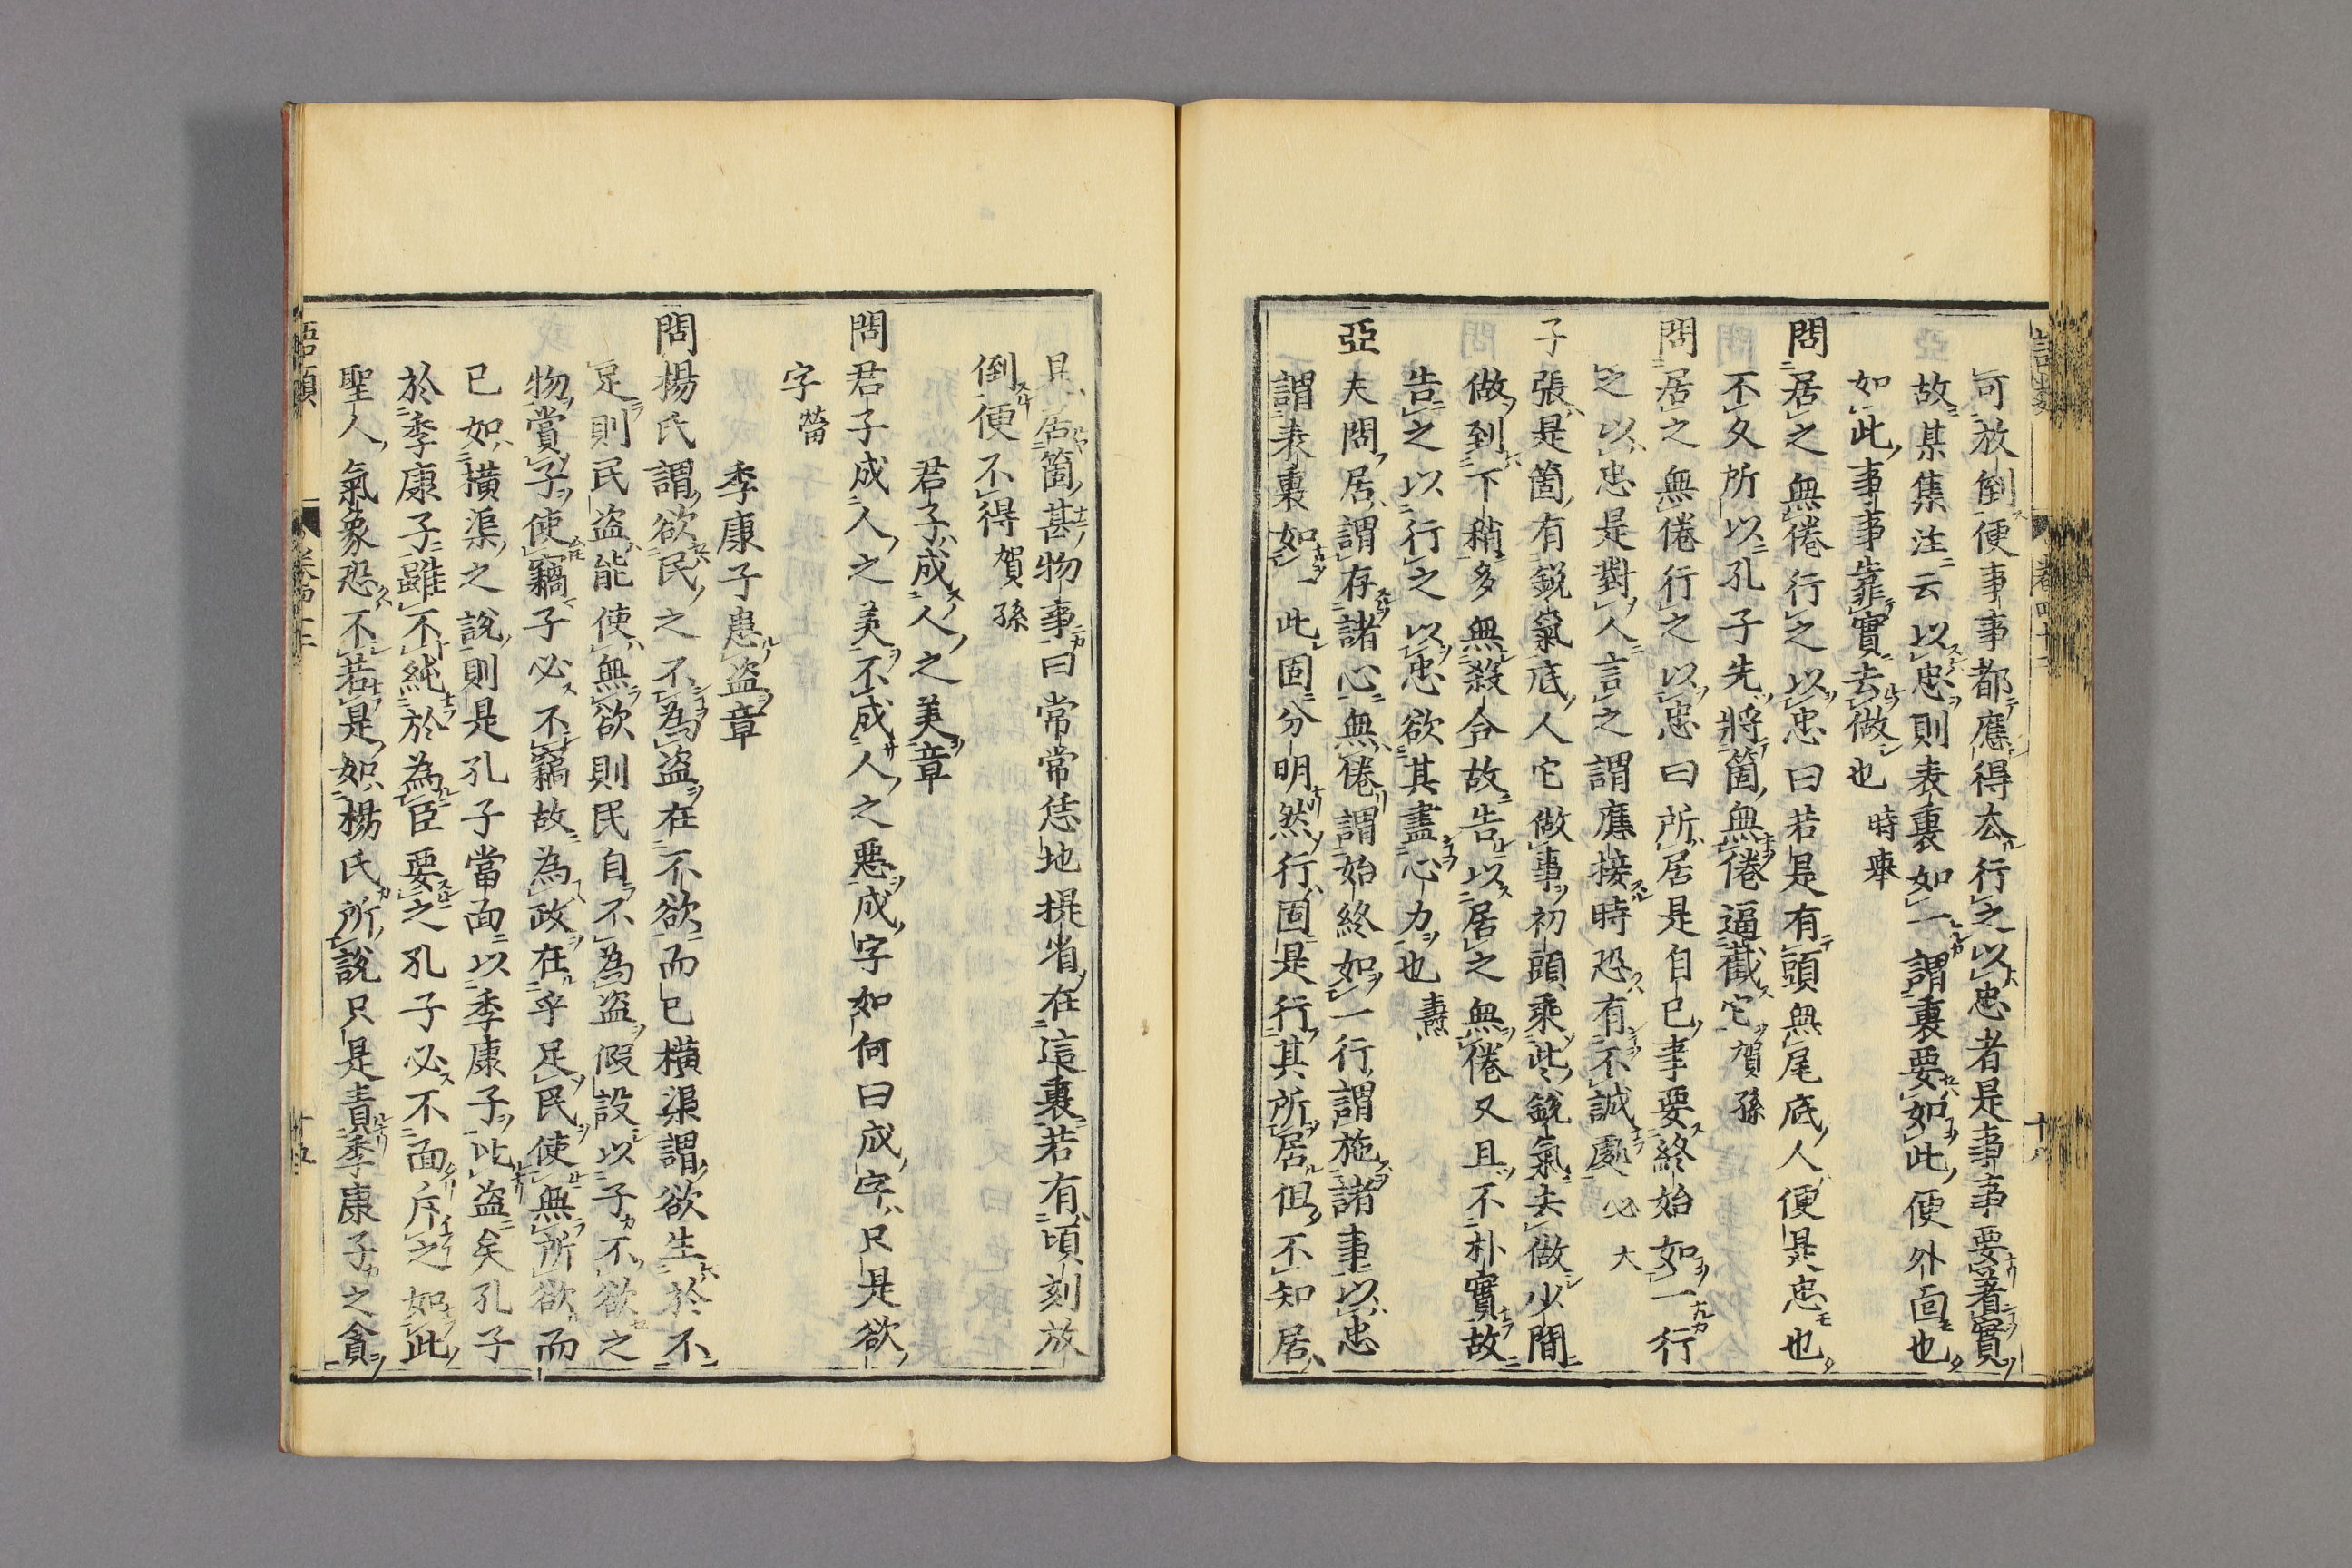 可放倒便事事都應得去行之以忠者是事事要著實
故某集注云以忠則表裏如一謂裏要如此便外面也
如此事事靠實去做也 時舉
問居之無倦行之以忠曰若是有頭無尾底人便是忠也
不久所以孔子先將箇無倦逼截它 賀孫
問居之無倦行之以忠曰所居是自己事要終始如一行
之以忠是對人言之謂應接時恐有不誠處 必大
子張是箇有銳氣底人它做事初頭乘此銳氣去做少間
做到下稍多無殺合故告以居之無倦又且不朴實故
告之以行之以忠欲其盡心力也 燾
亞夫問居謂存諸心無倦謂始終如一行謂施諸事以忠
謂表裏如一此固分明然行固是行其所居但不知居
是居箇甚物事曰常常恁地提省在這裏若有頃刻放
倒便不得 賀孫
君子成人之美章
問君子成人之美不成人之惡成字如何曰成字只是欲
字 㽦
季康子患盜章
問楊氏謂欲民之不為盜在不欲而已橫渠謂欲生於不
足則民盜能使無欲則民自不為盜假設以子不欲之
物賞子使竊子必不竊故為政在乎足民使無所欲而
已如橫渠之說則是孔子當面以季康子比盜矣孔子
於季康子雖不純於為臣要之孔子必不面斥之如此
聖人氣象恐不若是如楊氏所說只是責季康子之貪
語類 卷四十二 十五